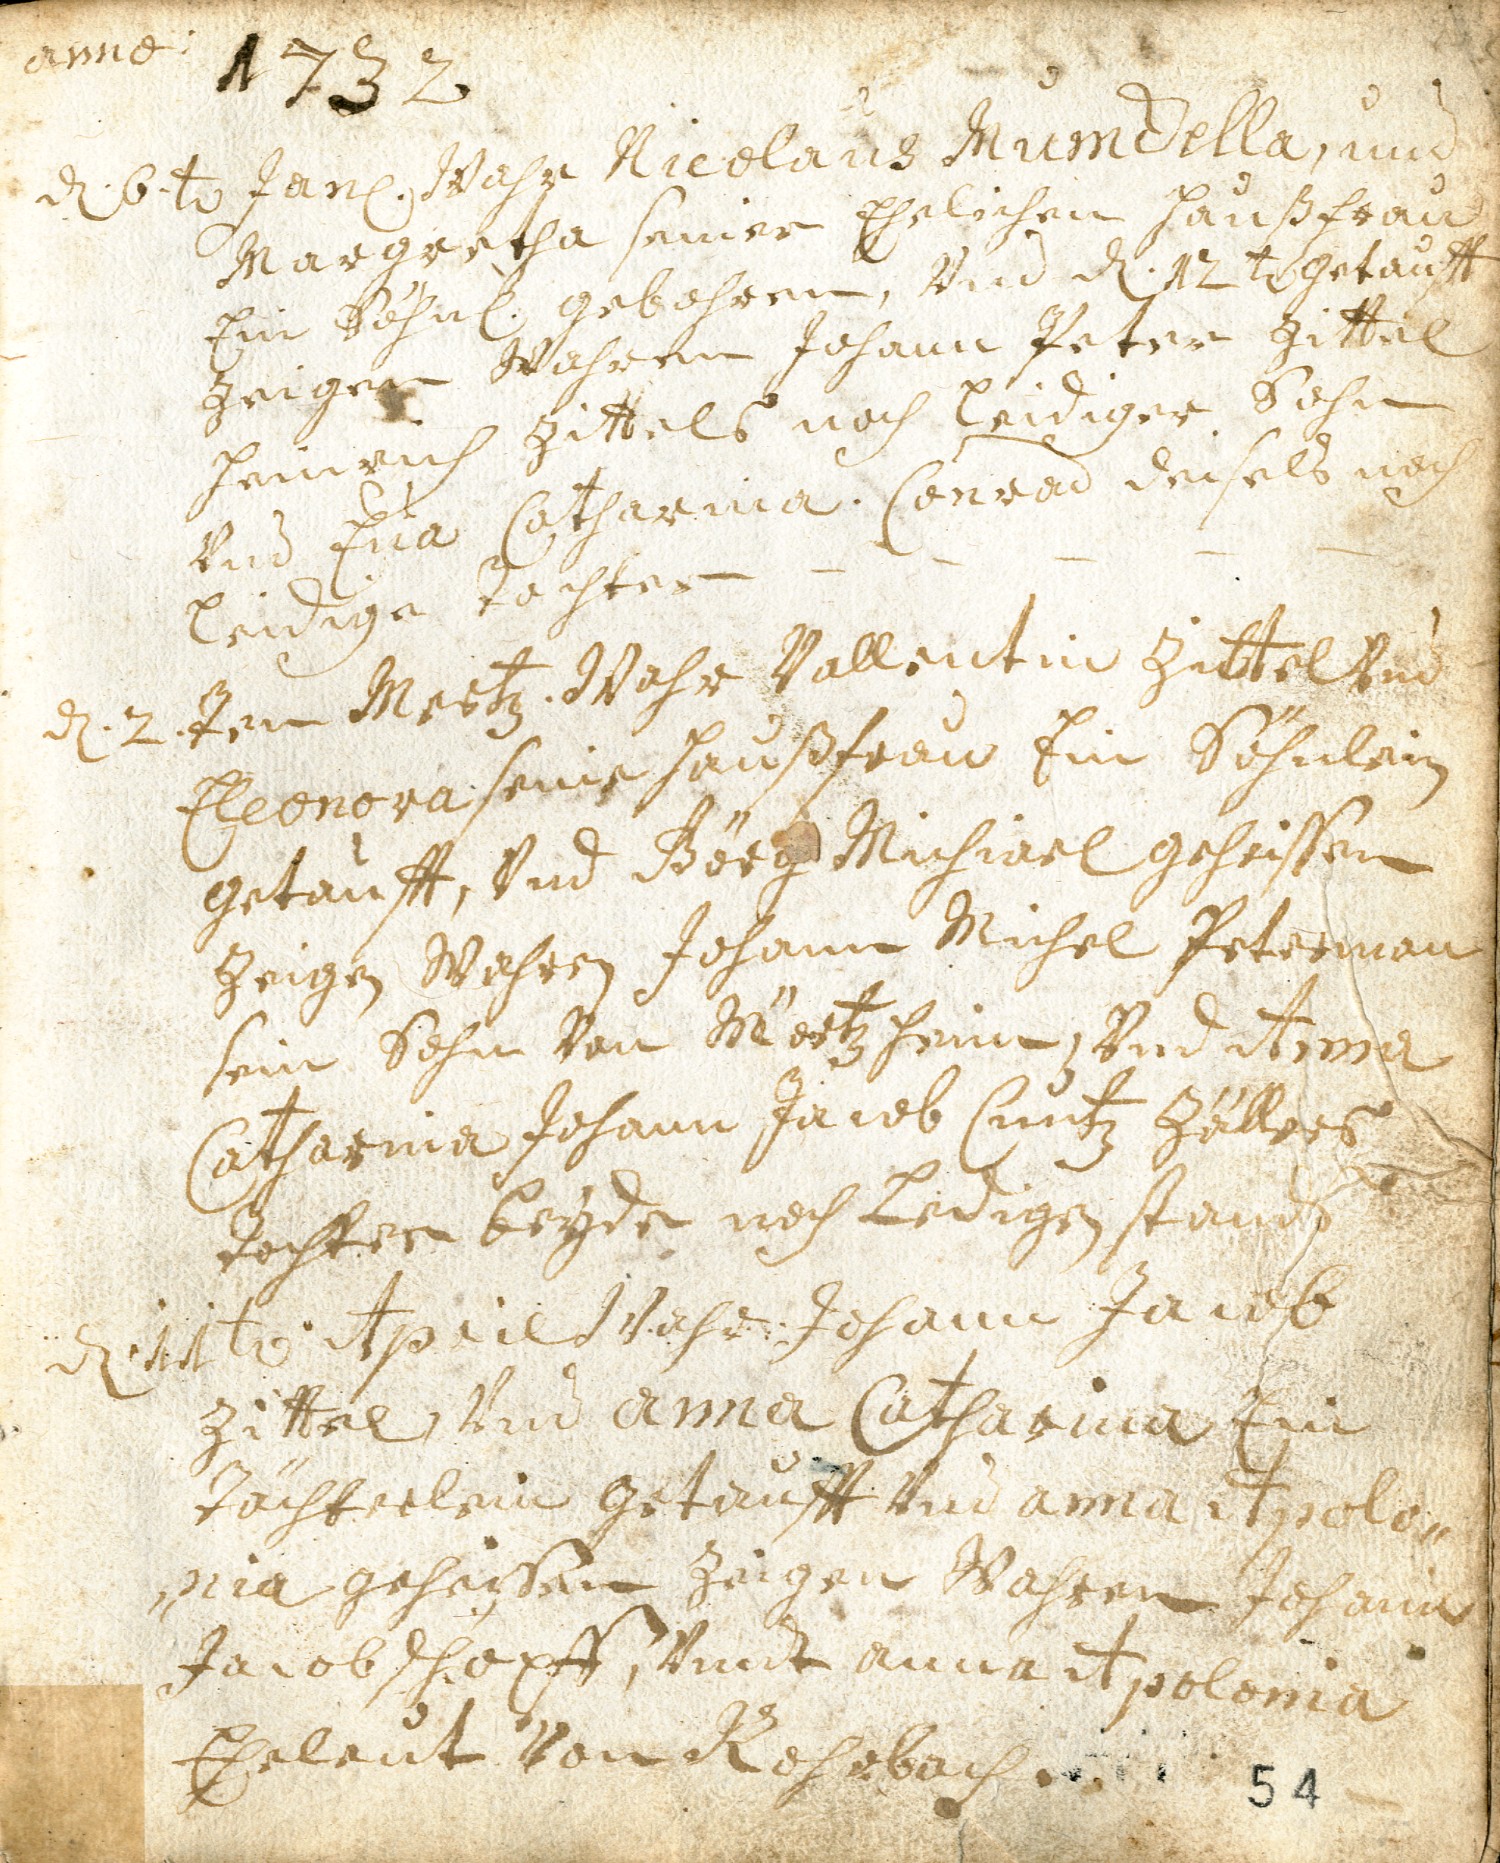 anno: 1732
d. 6.t Jan. Wahr Nicolaus Mumdella, und
Margretha seiner Ehelichen Haußfrau
Ein Söhnl. gebohren, Vnd d. 12 t getaufft
Zeigen Wahren Johann Peter Zittel
Heinrich Zittels noch leidiger Sohn
Vnd Eua Catharina. Conrad deisels noch
leidige Tochter
d. 2.ten Mertz. Wahr Vallentin Zittel Vnd
Eleonora seine Haußfrau Ein Söhnlein
getaufft, Vnd Görg Michael geheissen
Zeigen Wahren Johann Michel Peterman
sein Sohn Von Mörtzheim, Vnd Anna
Catharina Johann Jacob Cuntz Zöllers
Tochter beyde noch Ledigen stand
d. 11 t. April Wahr. Johann Jacob
Zittel, Vnd anna Catharina Ein
Töchterlein getaufft Vnd anna Apolo„
„nia geheissen Zeigen Wahren Johann
Jacob Schopff, Vnndt anna Apolonia
Eheleut Von Rohrbach
54